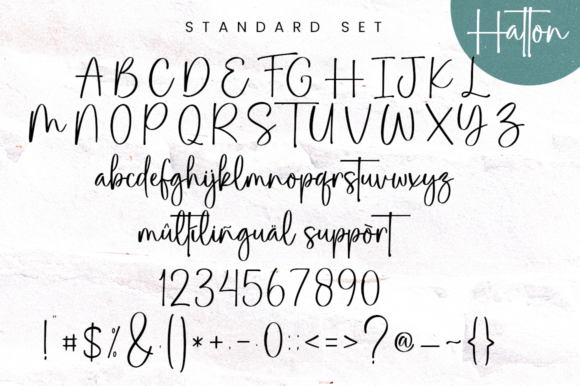 STANDARD SET
Hatton
ABCDEFGHIJKL
MNOPQRSTUVWXYZ
abcdefghijklmnopqrstuvwxyz
mûltilingüäl suppòrt
1234567890
!"#$%&()*+,-.0:;<=>?@_~{}